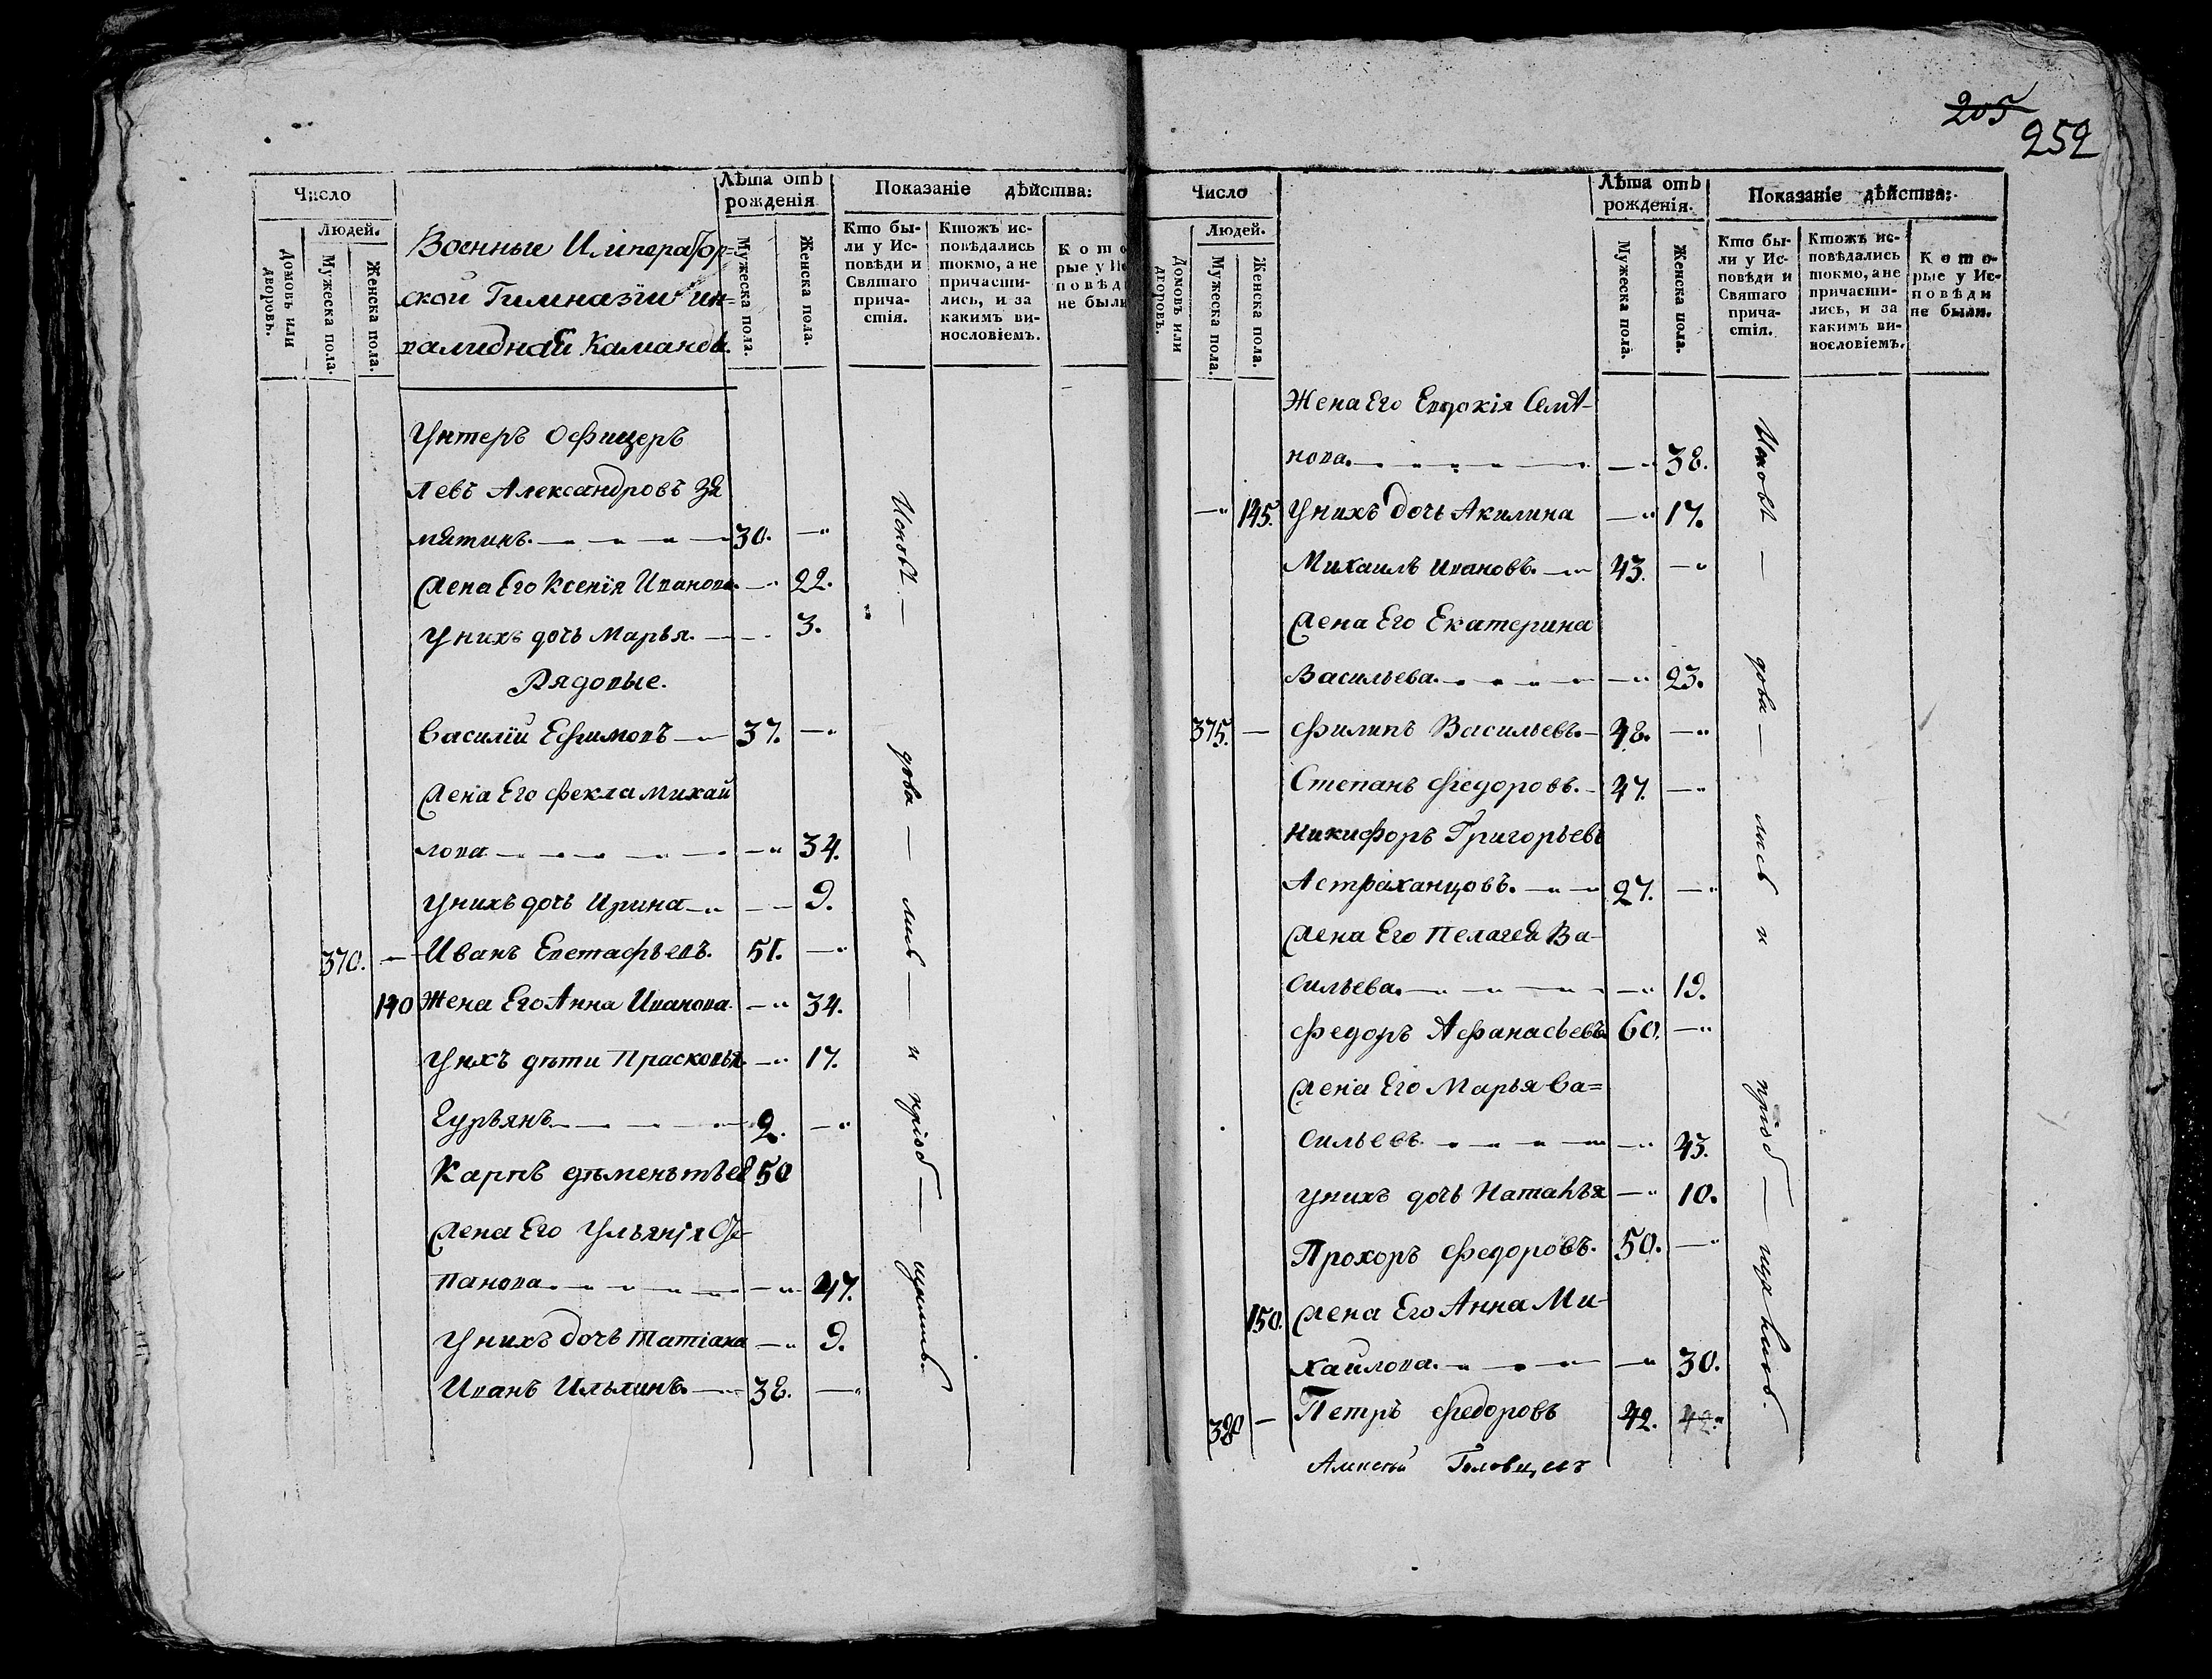 205
252
Число
Людей.
Домовъ или дворовъ.
Мужеска пола.
Женска пола.
Военные Император=
ской Гимназіи ин=
валидной Каманды.
Лѣта отъ
рожденія
Мужеска пола.
Женска пола.
Показаніе дѣйства:
Кто бы-
ли у Ис-
повѣди и
Святаго
прича-
стія.
Ктожъ ис-
повѣдались
токмо, а не
причасти-
лись, и за
какимъ ви-
нословіемъ.
Кото
рые у Ис
повѣд
не были
Унтеръ Офицеръ
Левъ Александровъ За
мятинъ. 30. —
Жена Его Ксенія Иванова. — 22.
У нихъ дочь Марья. — 3.
Рядовые.
Василій Ефимовъ — 37. —
Жена Его Фекла Михай
лова — 34.
У нихъ дочь Ирина — 9.
370. — Иванъ Евстафьевъ. 51. —
140 Жена Его Анна Иванова. — 34.
У нхъ дѣти Прасковья. — 17.
Гурьянъ. 2. —
Карпъ дѣменьтьев 50
Жена Его Ульянія Сте-
панова — 47.
У нихъ дочь Татіана — 9.
Иванъ Ильинъ. — 38. —
Исповѣ — дова — лись — и пріоб — щились.
Число
Людей.
Домовъ или дворовъ.
Мужеска пола.
Женска пола.
Лѣта отъ
рожденія.
Мужеска пола.
Женска пола.
Показаніе дѣйства:
Кто бы-
ли у Ис-
повѣди и
Святаго
прича-
стія.
Ктожъ ис-
повѣдались
токмо, а не
причасти-
лись, и за
какимъ ви-
нословіемъ.
Кото-
рые у Ис-
повѣди
не были.
Жена Его Евдокія Семѣ-
нова. — 38.
— 145. У нихъ дочь Акилина — 17.
Михаилъ Ивановъ. — 43. —
Жена Его Екатерина
Васильева. — 23.
375. — Филипъ Васильевъ. — 48. —
Степанъ Федоровъ. — 47. —
Никифоръ Григорьевъ
Астраханцовъ. — 27. —
Жена Его Пелагея Ва-
сильева. — 19.
Федоръ Афанасьевъ. 60. —
Жена Его Марья Ва=
сильевъ. — 43.
У нихъ дочь Наталья — 10.
Прохоръ Федоровъ. 50. —
150. Жена Его Анна Ми-
хайлова. — 30.
380 — Петръ Федоровъ 42. 42.
Исповѣ — дова — лись и пріоб — щились.